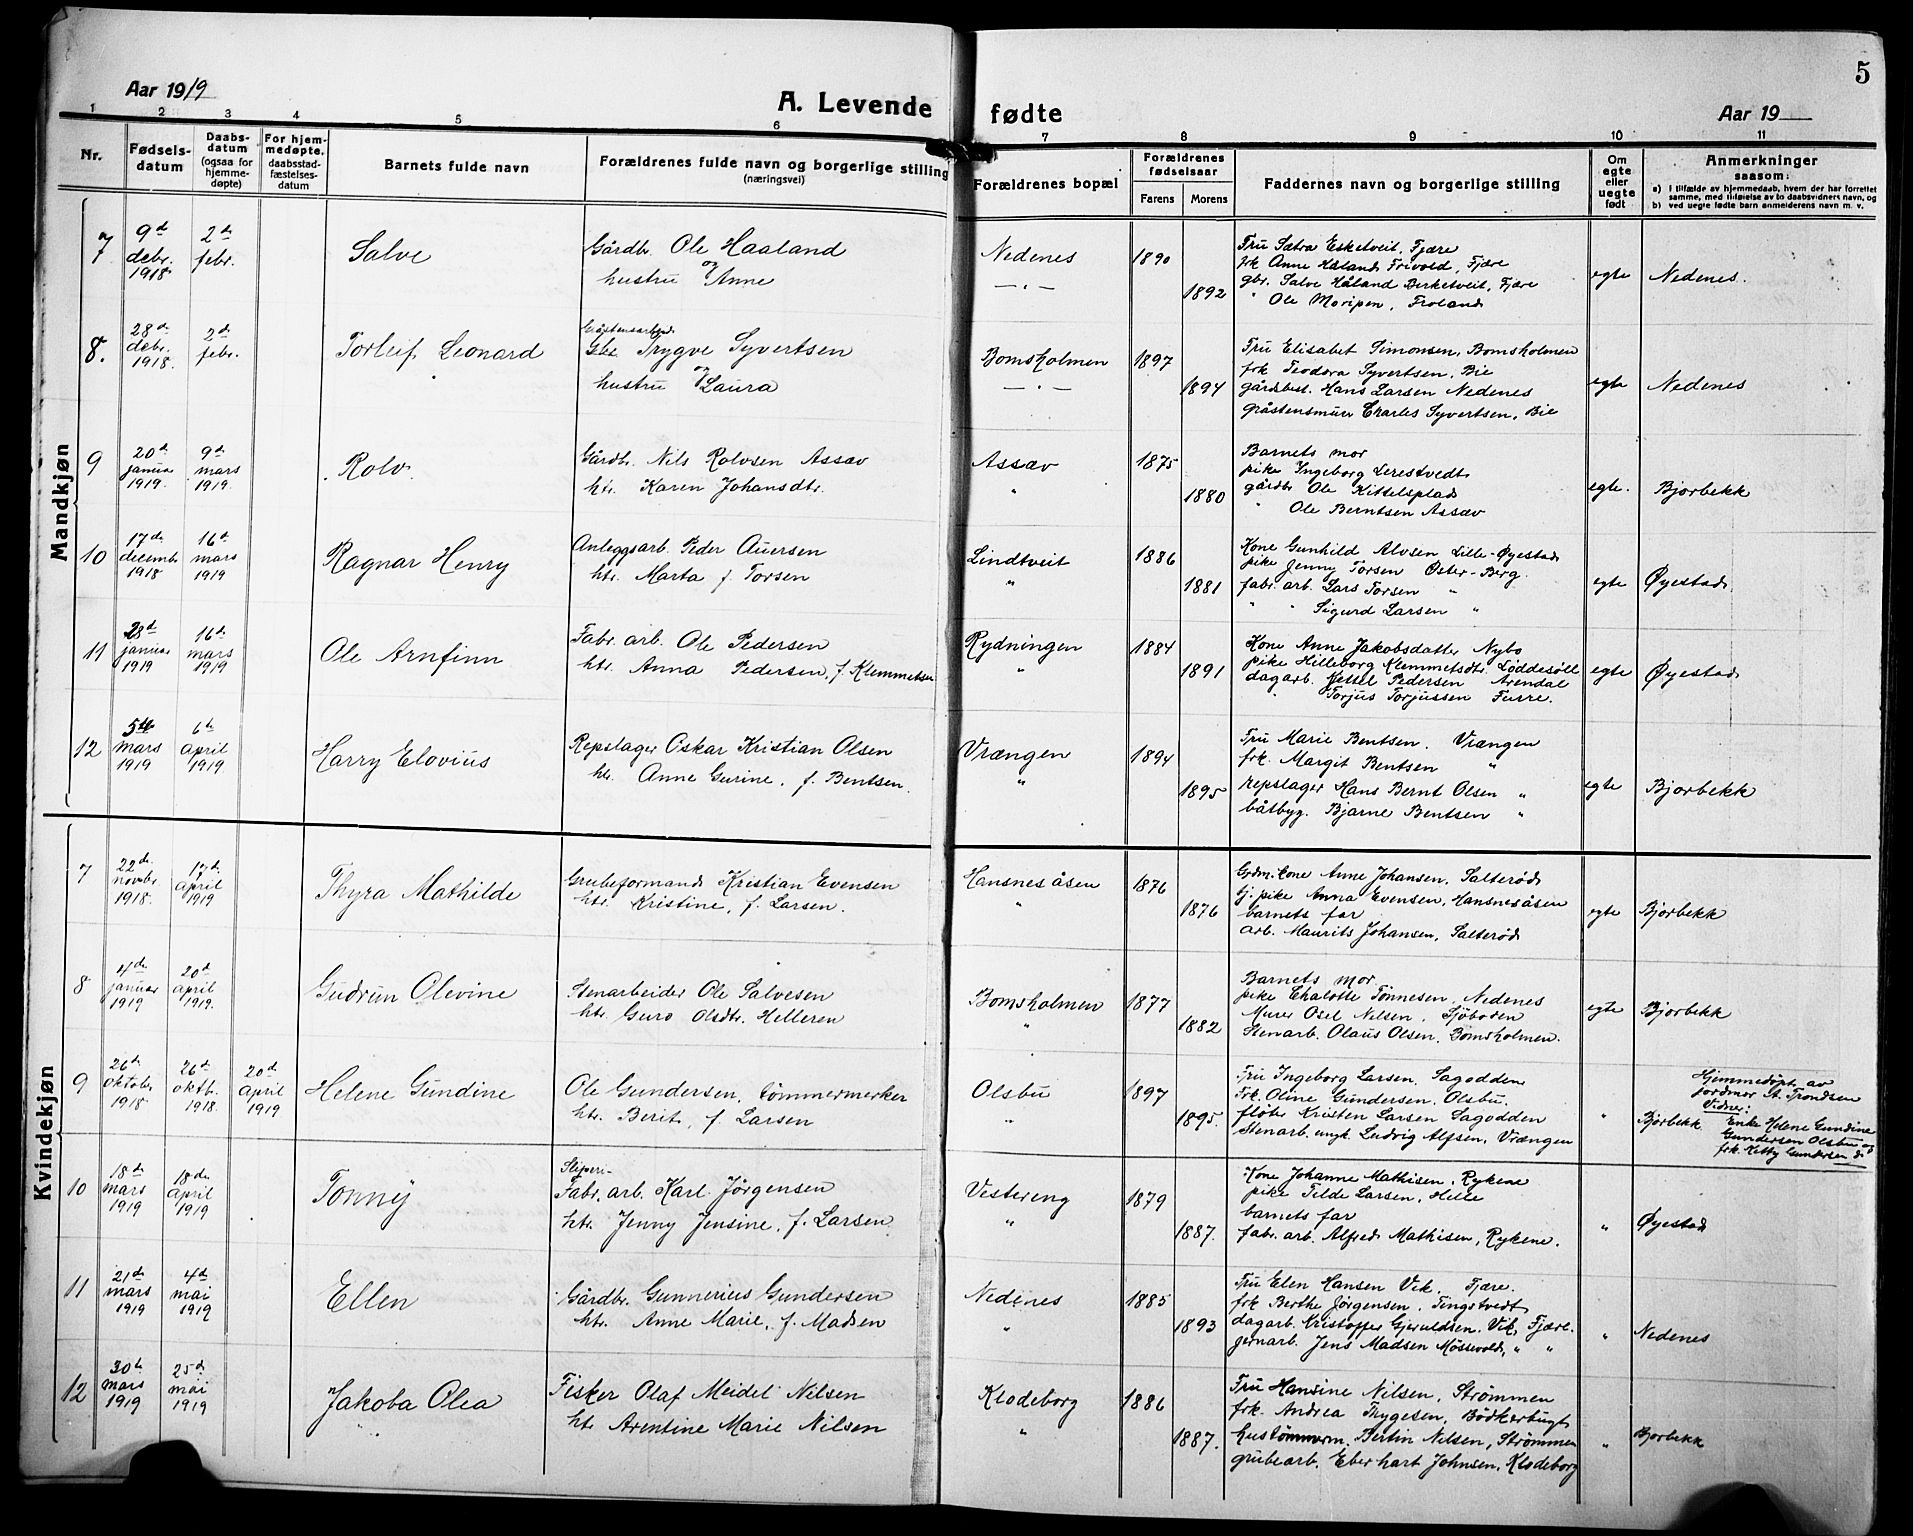 5
Aar 1919
A. Levende fødte
Aar 19
1 2 3 4 5 6 7 8 9 10 11
Nr.
Fødsels-datum
Daabs-datum (ogsaa for hjemme-døpte)
For hjem-medøpte. daabsstad-fæstelses-datum
Barnets fulde navn
Forældrenes fulde navn og borgerlige stilling (næringsvei)
Forældrenes bopæl
Forældrenes fødselsaar
Farens Morens
Faddernes navn og borgerlige stilling
Om egte eller uegte født
Anmerkninger saasom:
a) I tilfælde av hjemmedaab, hvem der har forrettet samme, med tilføielse av to daabsvidners navn, og
b) ved uegte fødte barn anmelderens navn m. v.
Mandkjøn
7
9d debr. 1918
2d febr.
Salve
Gårdb. Ole Haaland
og
hustru Anne
Nedenes
— " —
1890
1892
Fru Sætra Esketveit, Fjære
frk Anne Håland Frivold, Fjære
gbr. Salve Håland Birketveit, Fjære
" Ole Moripen, Froland
egte
Nedenes.
8.
28d debr. 1918.
2d febr.
Torleif Leonard
Gråstensarbeid.
Trygve Syvertsen
og
hustru Laura
Bomsholmen
— " —
1897
1894
Fru Elisabet Simonsen, Bomsholmen
frk Teodora Syvertsen, Bie
gårdbest. Hans Larsen Nedenes
gråstensmurer Charles Syvertsen, Bie
egte
Nedenes
9
20d januar 1919.
9d mars 1919.
Rolv.
Gårdb. Nils Rolvsen Assæv
htr. Karen Johansdtr.
Assæv
"
1875
1880
Barnets mor
pike Ingeborg Lerestvedt
gårdbr Ole Kittelsplas
" Ole Berntsen Assæv
egte.
Bjorbekk
10
17de decembr 1918
16d mars 1919
Ragnar Henry
Anleggsarb. Peder Auersen
htr. Marta f. Torsen
Lindtveit
"
1886
1881
Kone Gunhild Alvsen Lille-Øyestad
pike Jenny Torsen Øster-Berg.
fabr. arb. Lars Torsen "
" " Sigurd Larsen "
egte
Øyestad
11
28d januar 1919
16d mars 1919
Ole Arnfinn
Fabr. arb. Ole Pedersen
htr. Anna Pedersen, f. Klemmetsen
Rydningen
"
1884
1891
Kone Anne Jakobsdatter Nybo
pike Hilleborg Klemmetsdtr. Løddesøll
dagarb. Kettel Pedersen Arendal
" Torjus Torjussen Furre.
egte
Øyestad
12
5te mars 1919
6te April 1919.
Harry Elovius
Repslager Oskar Kristian Olsen
htr. Anne Gurine, f. Bentsen.
Vrængen
"
1894
1895
Fru Marie Bentsen. Vrængen
frk. Margit Bentsen "
repslager Hans Bernt Olsen "
båtbyg. Bjarne Bentsen "
egte
Bjorbekk
Kvindekjøn
7
22de novbr 1918.
17de April 1919
Thyra Mathilde
Grubeformand Kristian Evensen
htr. Kristine, f. Larsen.
Hansnesåsen
"
1876
1876
Grdm. kone Anne Johansen, Salterød
Gj. pike Anna Evensen, Hansnesåsen
barnets far
arb. Maurits Johansen, Salterød
egte
Bjorbekk
8
4de januar 1919
20d april 1919.
Gudrun Olevine
Stenarbeider Ole Salvesen
htr. Guro Olsdtr. Helleren
Bomsholmen
"
1877
1882
Barnets mor
pike Chalotte Tønnesen, Nedenes
Murer Osel Nilsen, Sjøboden
Stenarb. Olaus Olsen. Bomsholmen.
egte
Bjorbekk
9
26de Oktober 1918
26d oktb. 1918.
20d April 1919
Helene Gundine
Ole Gundersen, tømmermerker
htr. Berit, f. Larsen
Olsbu
"
1897
1895.
Fru Ingeborg Larsen. Sagodden
Frk. Oline Gundersen. Olsbu.
fløter Kristen Larsen Sagodden
Stenarb. ungk. Ludvig Alfsen, Vrængen
"
Bjørbekk
Hjemmedøpt av
jordmor St. Trondsen
Vidner:
Enke Helene Gundine
Gundersen Olsbu og
frk. Kitty Gundersen
10
18de mars 1919
18de April 1919
Tonny
Sliperi-
Fabr. arb. Karl Jørgensen
htr. Jenny Jensine, f. Larsen
Vestereng
"
1879
1887.
Kone Johanne Mathisen, Rykene
pike Tilde Larsen, Helle
barnets far
fabr. arb. Alfred Mathisen, Rykene.
"
Øyestad
11
21de mars 1919
4de mai 1919
Ellen
Gårdbr. Gunnerius Gundersen
htr. Anne Marie, f. Madsen
Nedenes
"
1885
1893
Fru Elen Hansen Vik, Fjære.
frk. Berthe Jørgensen, Tingstvedt
dagarb. Kristoffer Gjeruldsen. Vik, Fjære.
jernarb. Jens Madsen Mossevold, " "
"
Nedenes
12
30te mars 1919
25de mai 1919
Jakoba Olea
Fisker Olaf Meidel Nilsen
htr. Arentine Marie Nilsen
Klodeborg
"
1886
1887.
Fru Hansine Nilsen, Strømmen
frk. Andrea Thygesen, Bødkerbugt
hustømmerm. Bertin Nilsen, Strømmen
grubearb. Eberhart Johnsen, Klodeborg
"
Bjorbekk